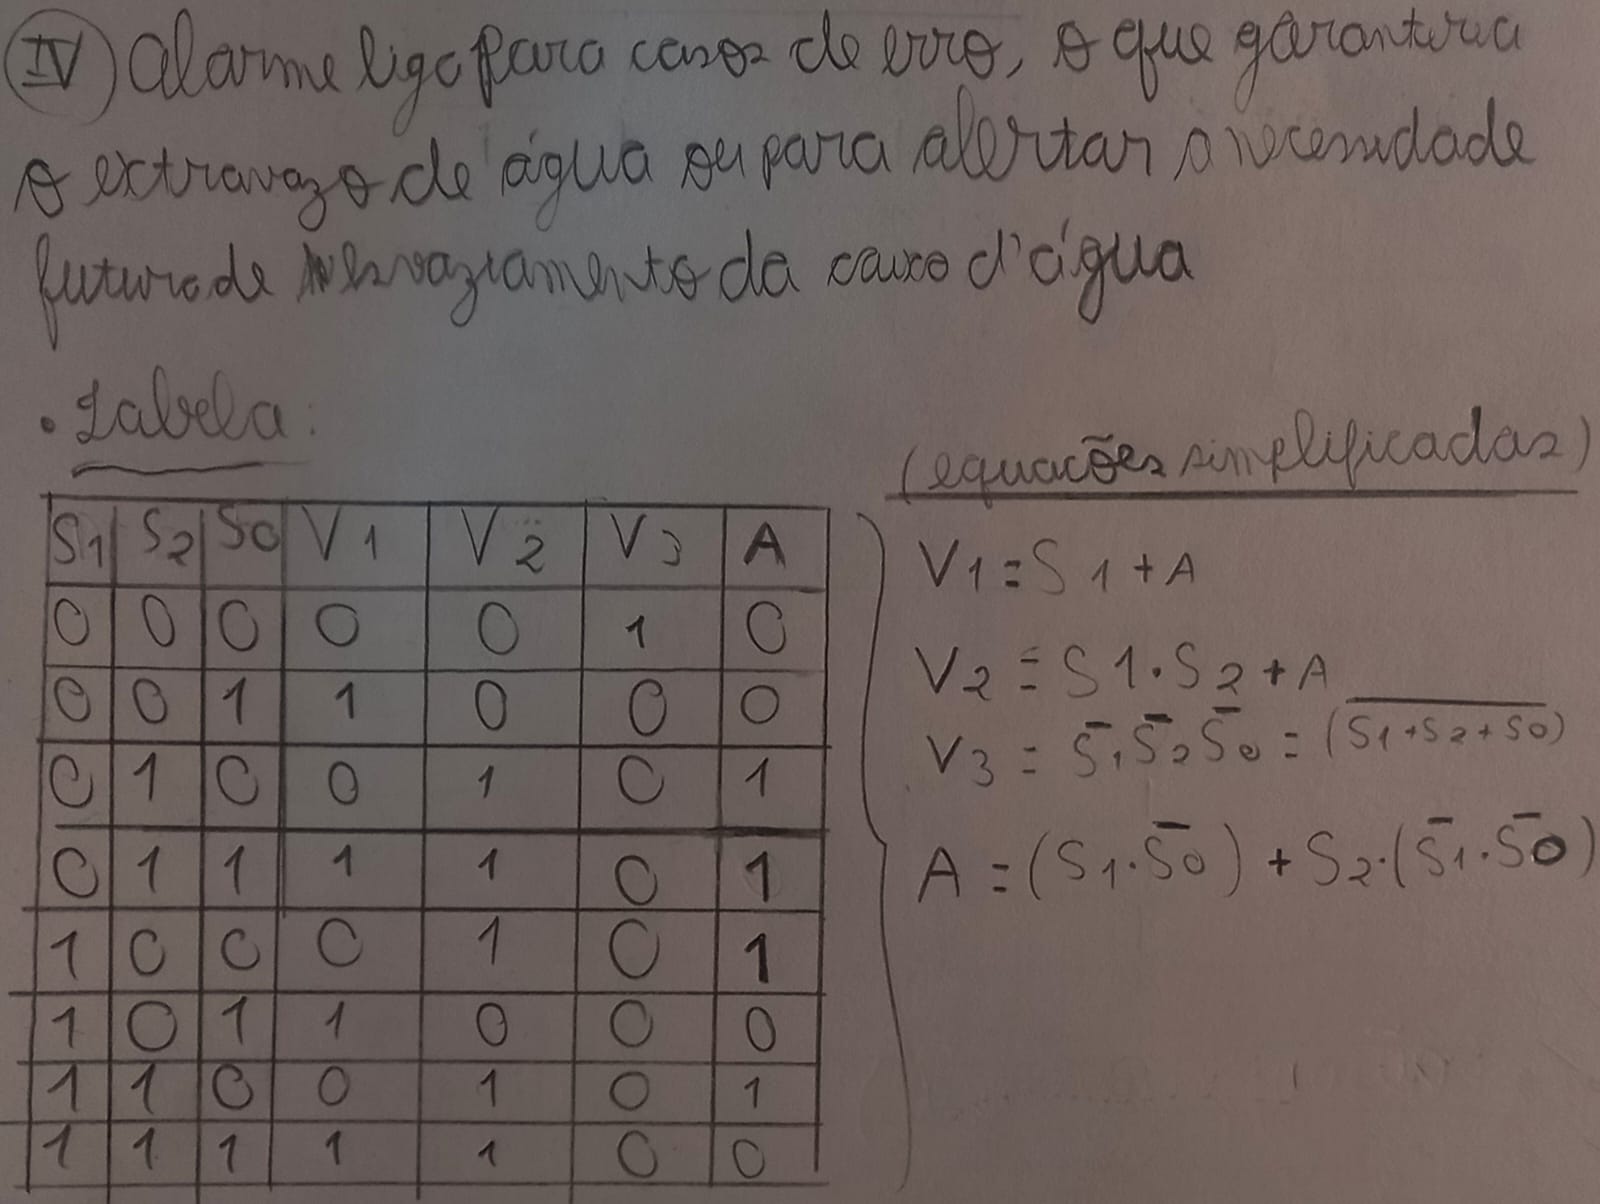 IV) Alarme liga para casos de erro, o que garantiria
o extravazo de água ou para alertar a necessidade
futura de esvaziamento da caixa d'água
• Tabela:
(equacões simplificadas)
S1 S2 S0 V1 V2 V3 A
0 0 0 0 0 1 0
0 0 1 1 0 0 0
0 1 0 0 1 0 1
0 1 1 1 1 0 1
1 0 0 0 1 0 1
1 0 1 1 0 0 0
1 1 0 0 1 0 1
1 1 1 1 1 0 0
V1 = S1 + A
V2 = S1·S2 + A
V3 = S̄1 S̄2 S̄0 = (\overline{S1+S2+S0})
A = (S1·S̄0) + S2·(S̄1·S̄0)